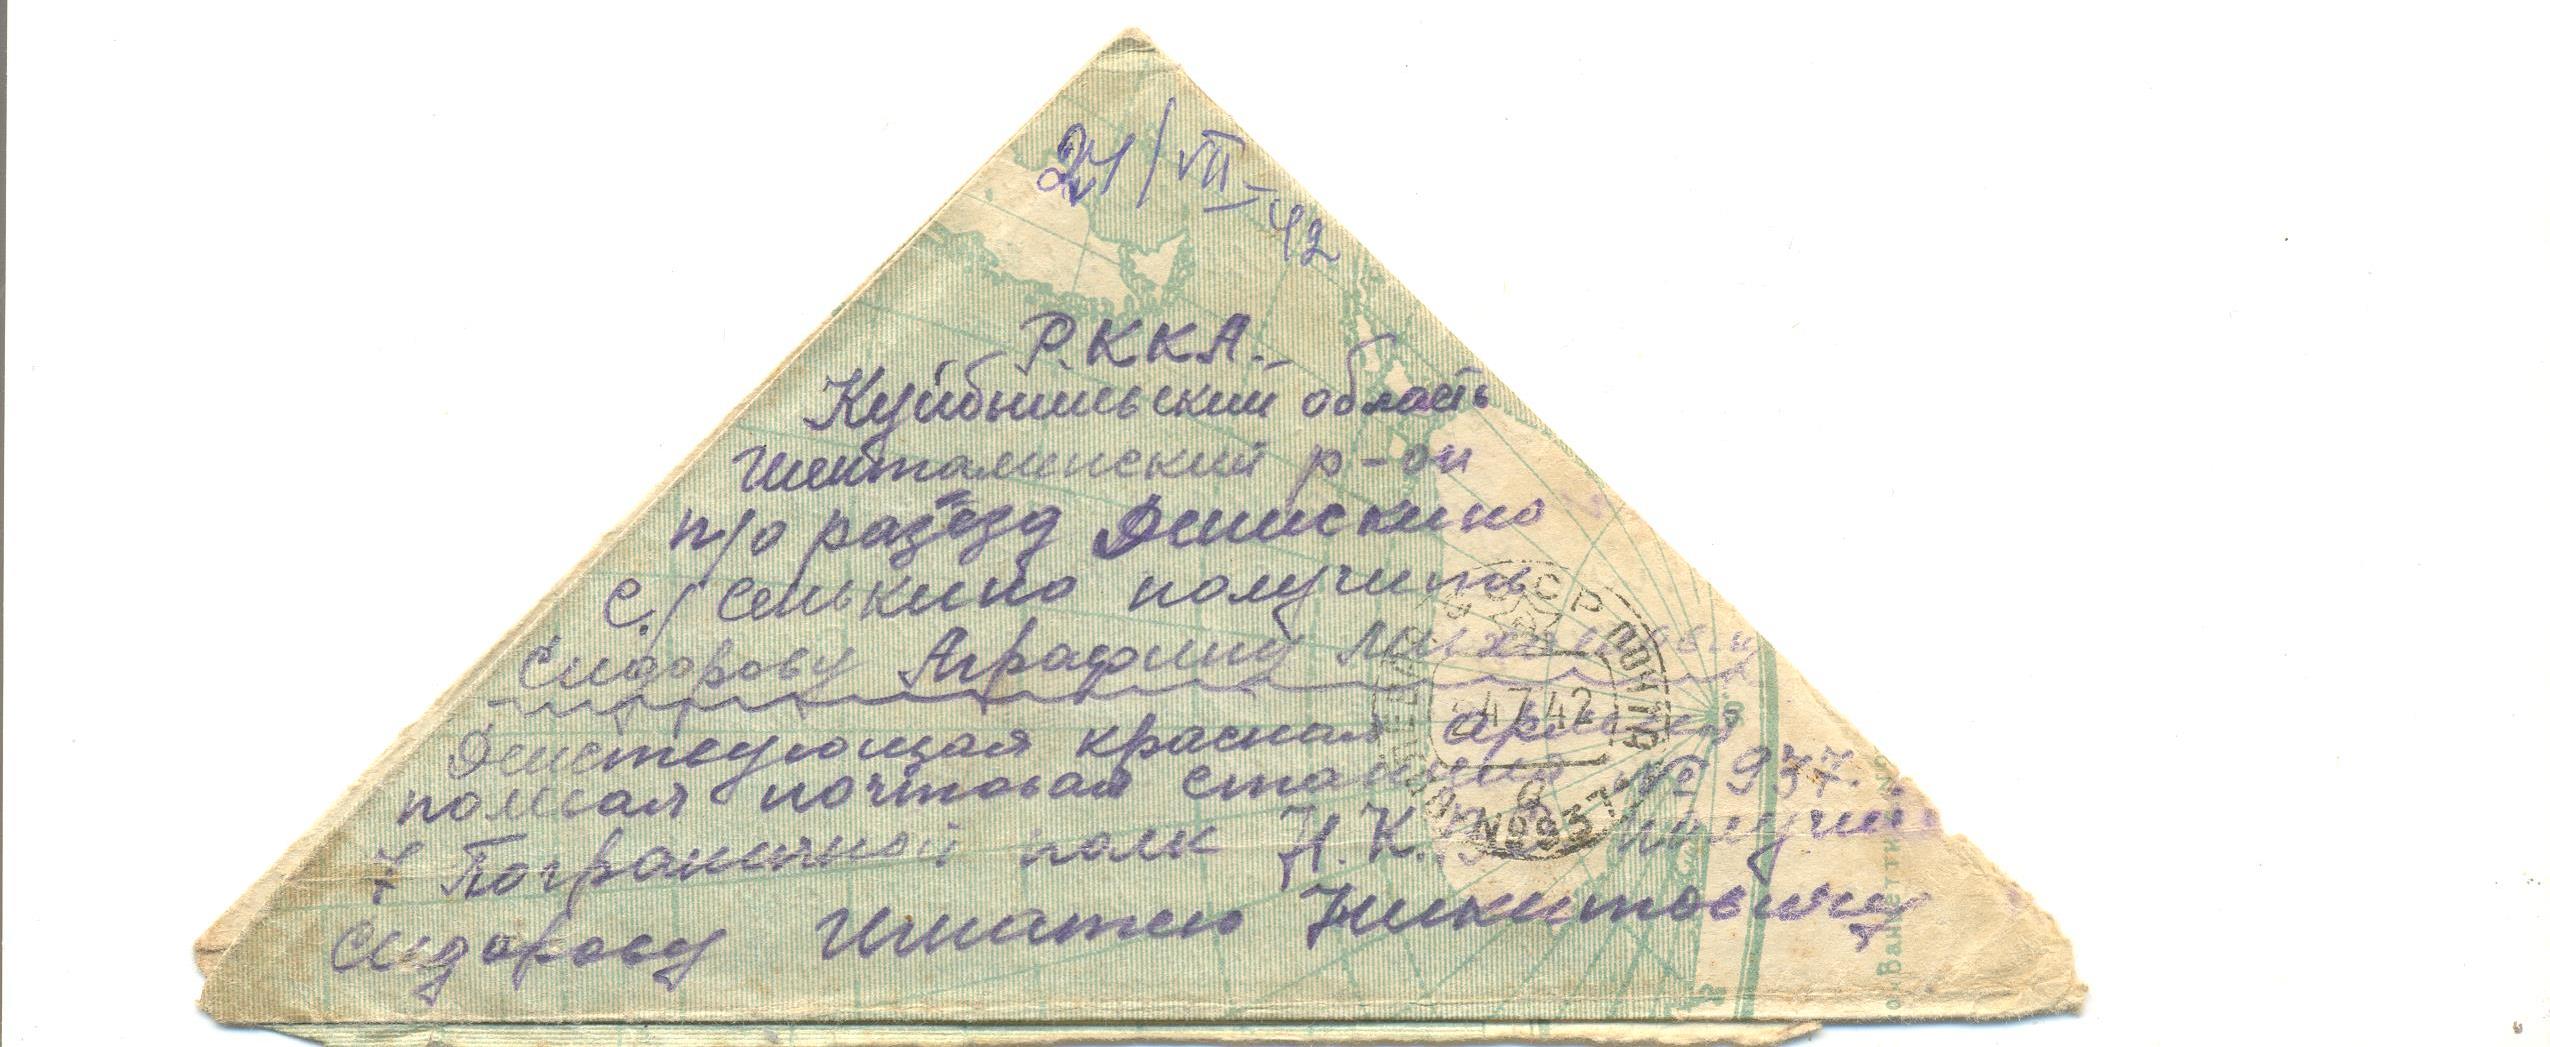 21/VII-42
Р.ККА.
Куйбышевский область
Шенталинский р-он
п/о разъезд Денискино
с./Сенькино получить
Сидорову Аграфину
Действующая красная армия
полевая почтовая станция № 937.
7 Пограничной полк Н.К.
Сидорову Игнатию Никитовичу
СССР
4742
№937